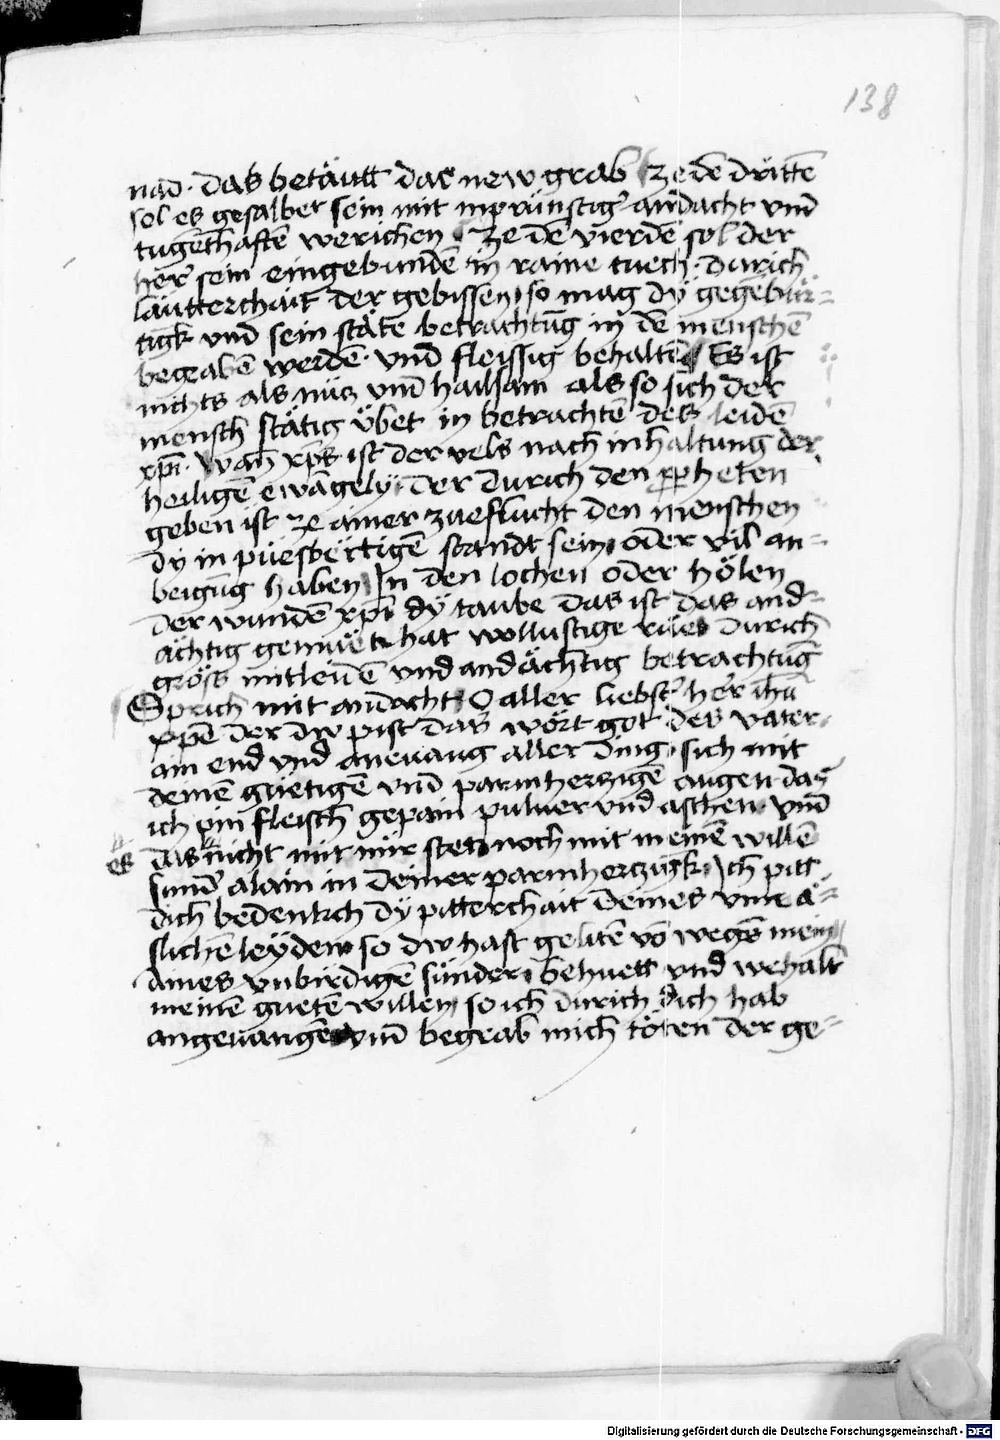 138
nad · das betäutt das new grab Ze dē dritten
sol es gesalbet sein mit inprünstig̃ andacht vnd
tugenthaftē werichen Ze dē vierdē sol der
her sein eingebundē in raine tuech · durich
läutterchait der gebissen so mag dÿ gegēbür=
tigk vnd sein stäte betrachtūg in dē menschē
begrabē werdē · vnd fleissig behaltē Es ist
nichts als nüz vnd hailsam als so sich der
mensch stätig übet in betrachtē des leidē
xpī · Wan xps ist der vels nach inhaltung der
heiligē ewāgely · der durich den propheten
geben ist ze ainer zueflucht den menschen
dÿ in püesbertigē standt sein oder vil an=
beigūg haben In den lochen oder hölen
der wundē xpī dÿ taube das ist das and=
ächtig gemüet hat wollustige rüe durich
gröss mitleidē vnd andächtig betrachtūg
Sprich mit andacht O aller liebst̃ her ihū
xpē der dw pist das wört got des vater
ain end vnd anevang aller ding · sich mit
deinē güetigē vnd parmherczigē augen · das
ich pin fleisch gepain puluer vnd aschen · vnd
es das nicht mit mir stet noch mit meinē willē
sund̃ alain in deiner parmherczigk · Ich pitt
dich bedenkch dÿ pitterchait deines vnne ä=
slichē leÿden so dw hast gelitē võ wegē mein
aines vnbirdigē sünder behuett vnd erhalt
meinē guetē willen so ich durich dich hab
angeuangē vnd begrab mich töten der ge=
Digitalisierung gefördert durch die Deutsche Forschungsgemeinschaft - DFG